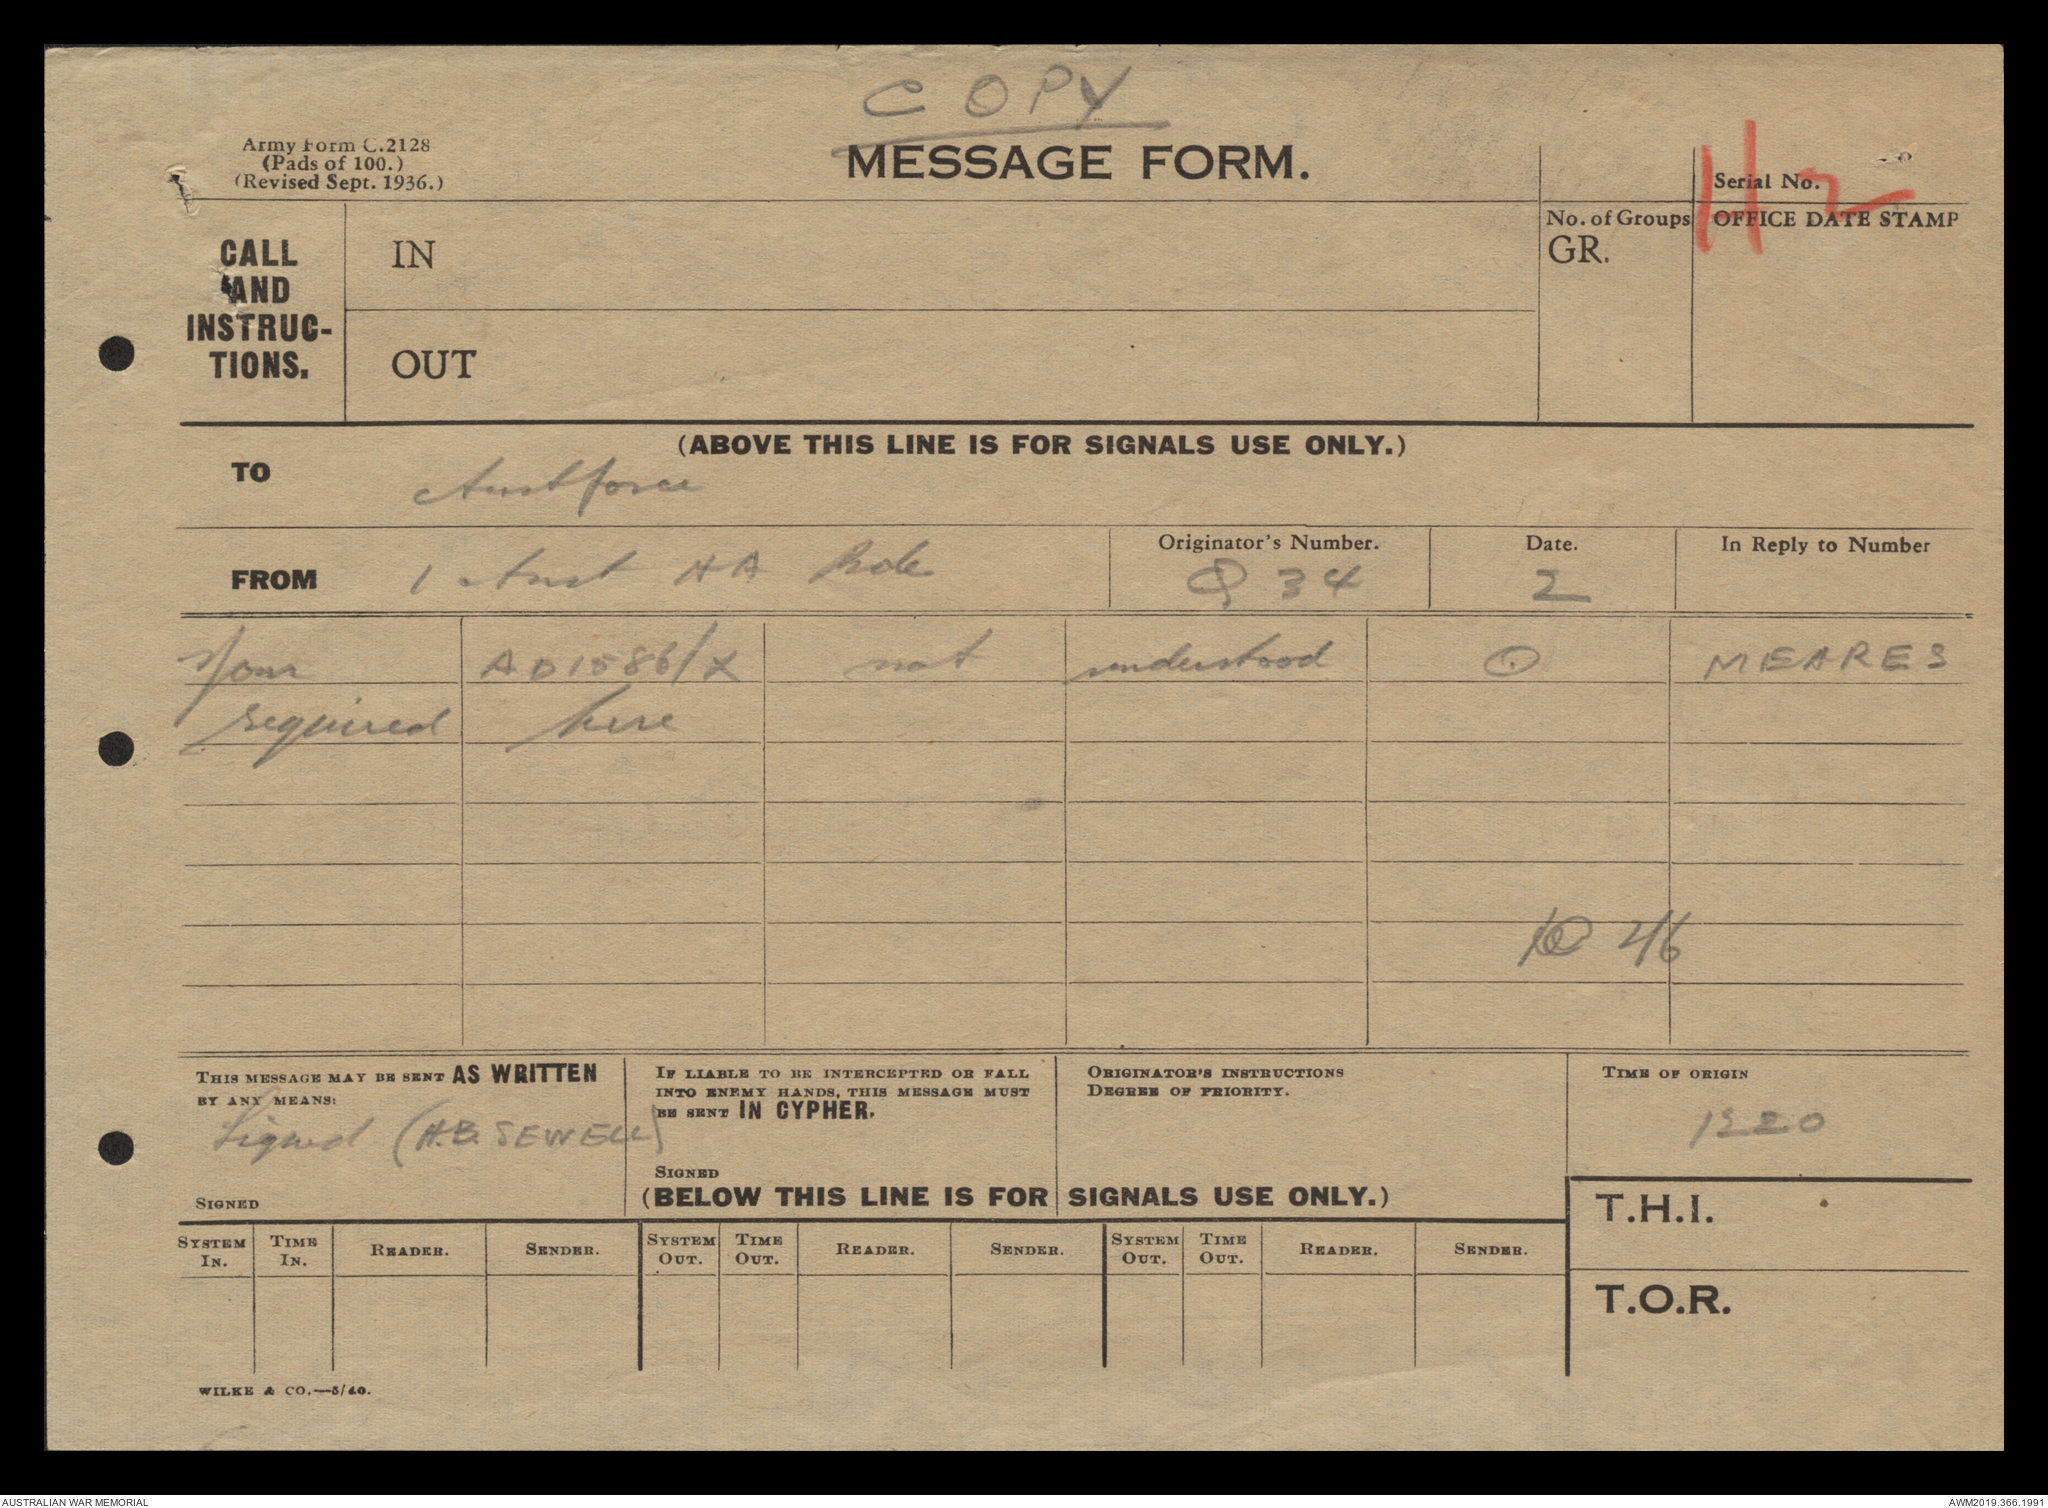 COPY
Army Form C.2128
(Pads of 100.)
(Revised Sept. 1936.)
MESSAGE FORM.
Serial No.
H2
CALL
AND
INSTRUC-
TIONS.
IN
OUT
No. of Groups
GR.
OFFICE DATE STAMP
(ABOVE THIS LINE IS FOR SIGNALS USE ONLY.)
TO Austforce
FROM 1 Aust AA Bde
Originator's Number.
Q 34
Date.
2
In Reply to Number
Your AD1586/X not understood ⊙ MEARES
required here
2/6
THIS MESSAGE MAY BE SENT AS WRITTEN
BY ANY MEANS:
Signed (H.B. SEWELL)
SIGNED
IF LIABLE TO BE INTERCEPTED OR FALL
INTO ENEMY HANDS, THIS MESSAGE MUST
BE SENT IN CYPHER.
SIGNED
ORIGINATOR'S INSTRUCTIONS
DEGREE OF PRIORITY.
TIME OF ORIGIN
(BELOW THIS LINE IS FOR SIGNALS USE ONLY.)
T.H.I.
T.O.R.
SYSTEM IN. TIME IN. READER. SENDER. SYSTEM OUT. TIME OUT. READER. SENDER. SYSTEM OUT. TIME OUT. READER. SENDER.
WILKE & CO.—5/40.
AUSTRALIAN WAR MEMORIAL
AWM2019.366.1991